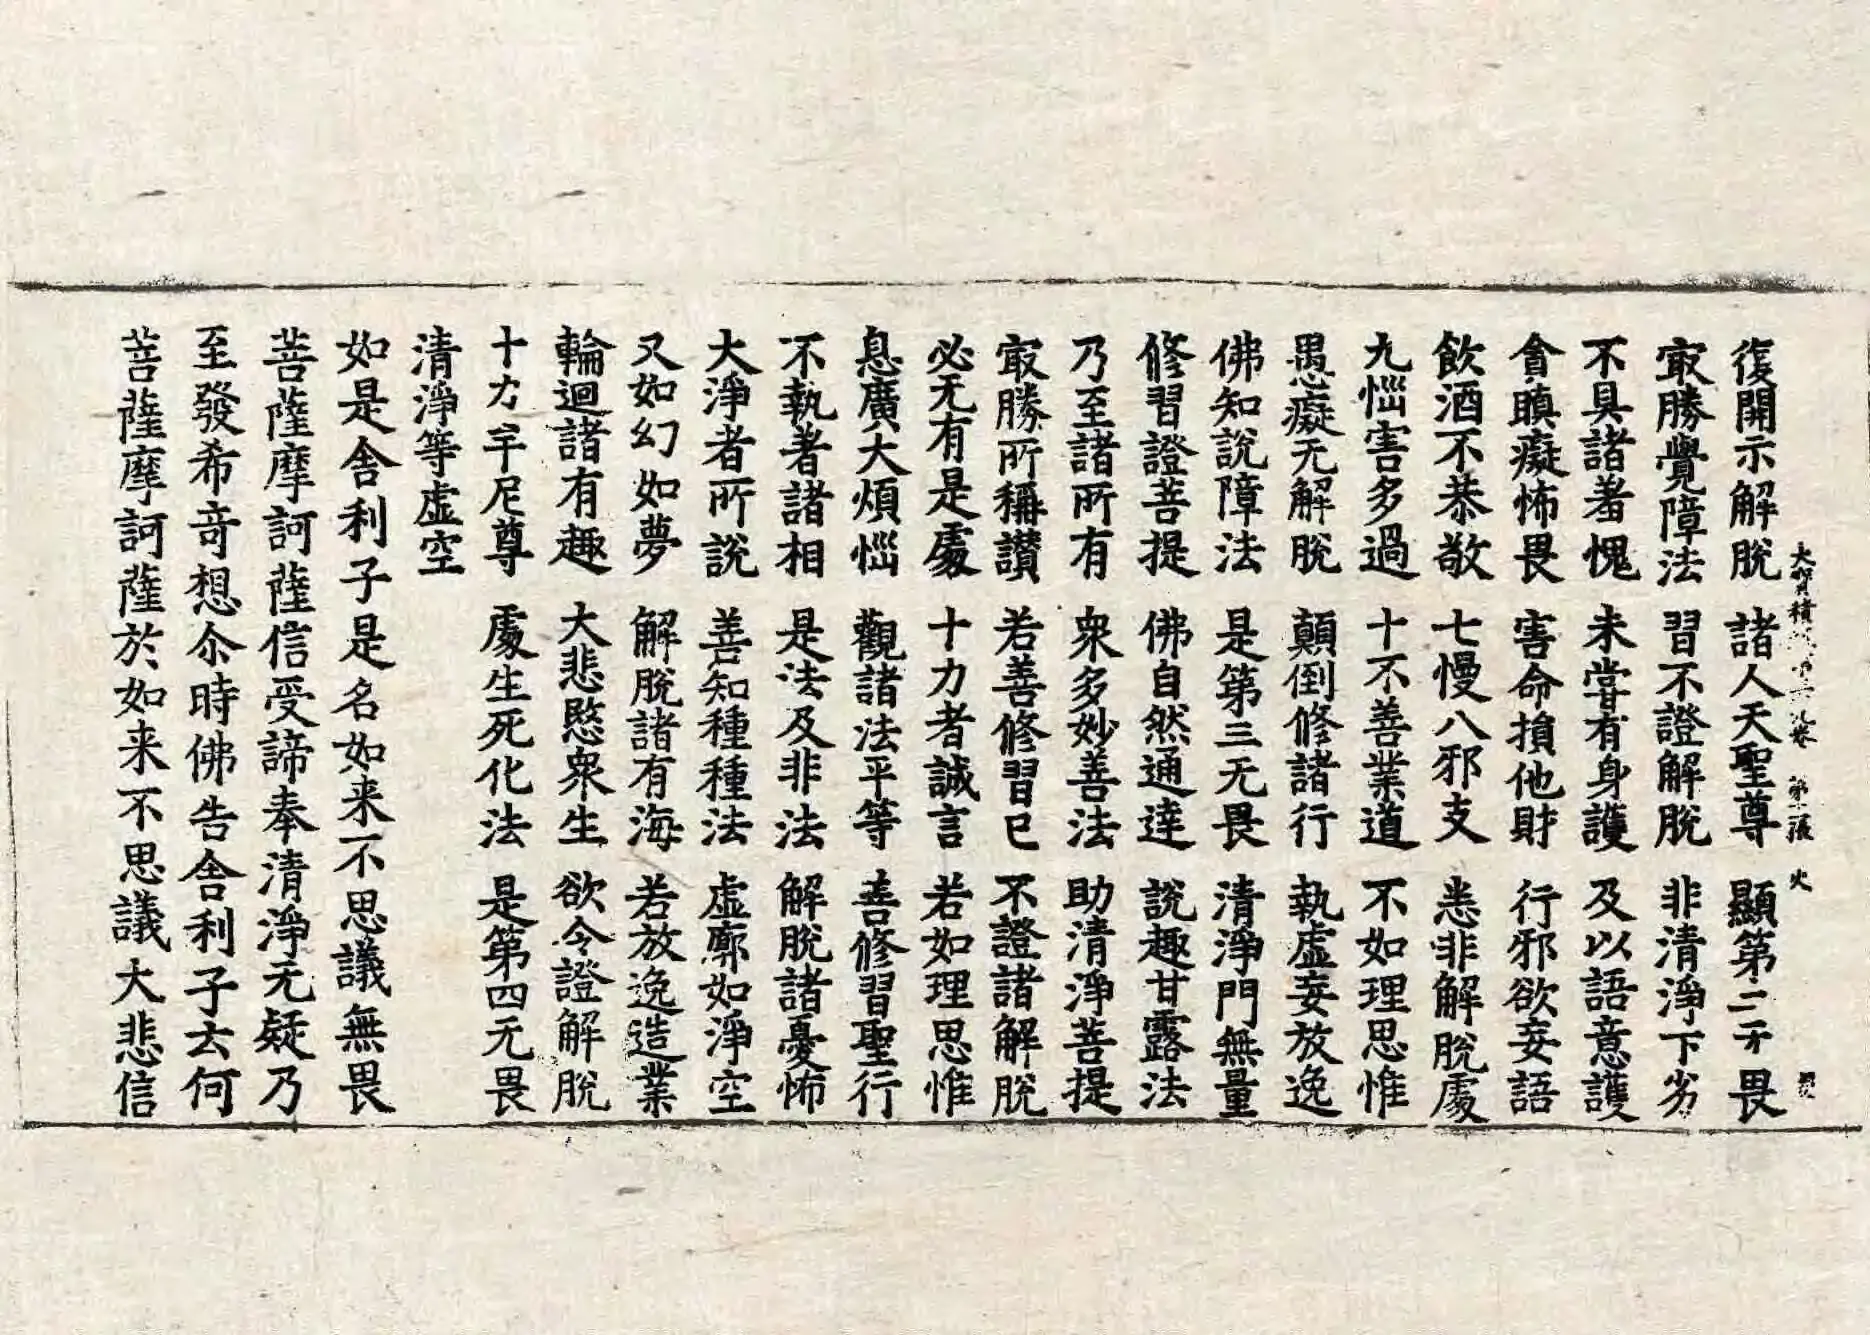 復開示解脫 諸人天聖尊 顯第二无畏
㝡勝覺障法 習不證解脫 非清淨下劣
不具諸羞愧 未嘗有身護 及以語意護
貪瞋癡怖畏 害命損他財 行邪欲妄語
飲酒不恭敬 七慢八邪支 悉非解脫處
九惱害多過 十不善業道 不如理思惟
愚癡无解脫 顛倒修諸行 執虛妄放逸
佛知說障法 是第三无畏 清淨門無量
修習證菩提 佛自然通達 說趣甘露法
乃至諸所有 衆多妙善法 助清淨菩提
㝡勝所稱讚 若善修習已 不證諸解脫
必无有是處 十力者誠言 若如理思惟
息廣大煩惱 觀諸法平等 善修習聖行
不執著諸相 是法及非法 解脫諸憂怖
大淨者所說 善知種種法 虛廓如淨空
又如幻如夢 解脫諸有海 若放逸造業
輪迴諸有趣 大悲愍衆生 欲令證解脫
十力牟尼尊 處生死化法 是第四无畏
清淨等虛空
如是舍利子是名如来不思議無畏
菩薩摩訶薩信受諦奉清淨无疑乃
至發希奇想尒時佛告舍利子云何
菩薩摩訶薩於如来不思議大悲信